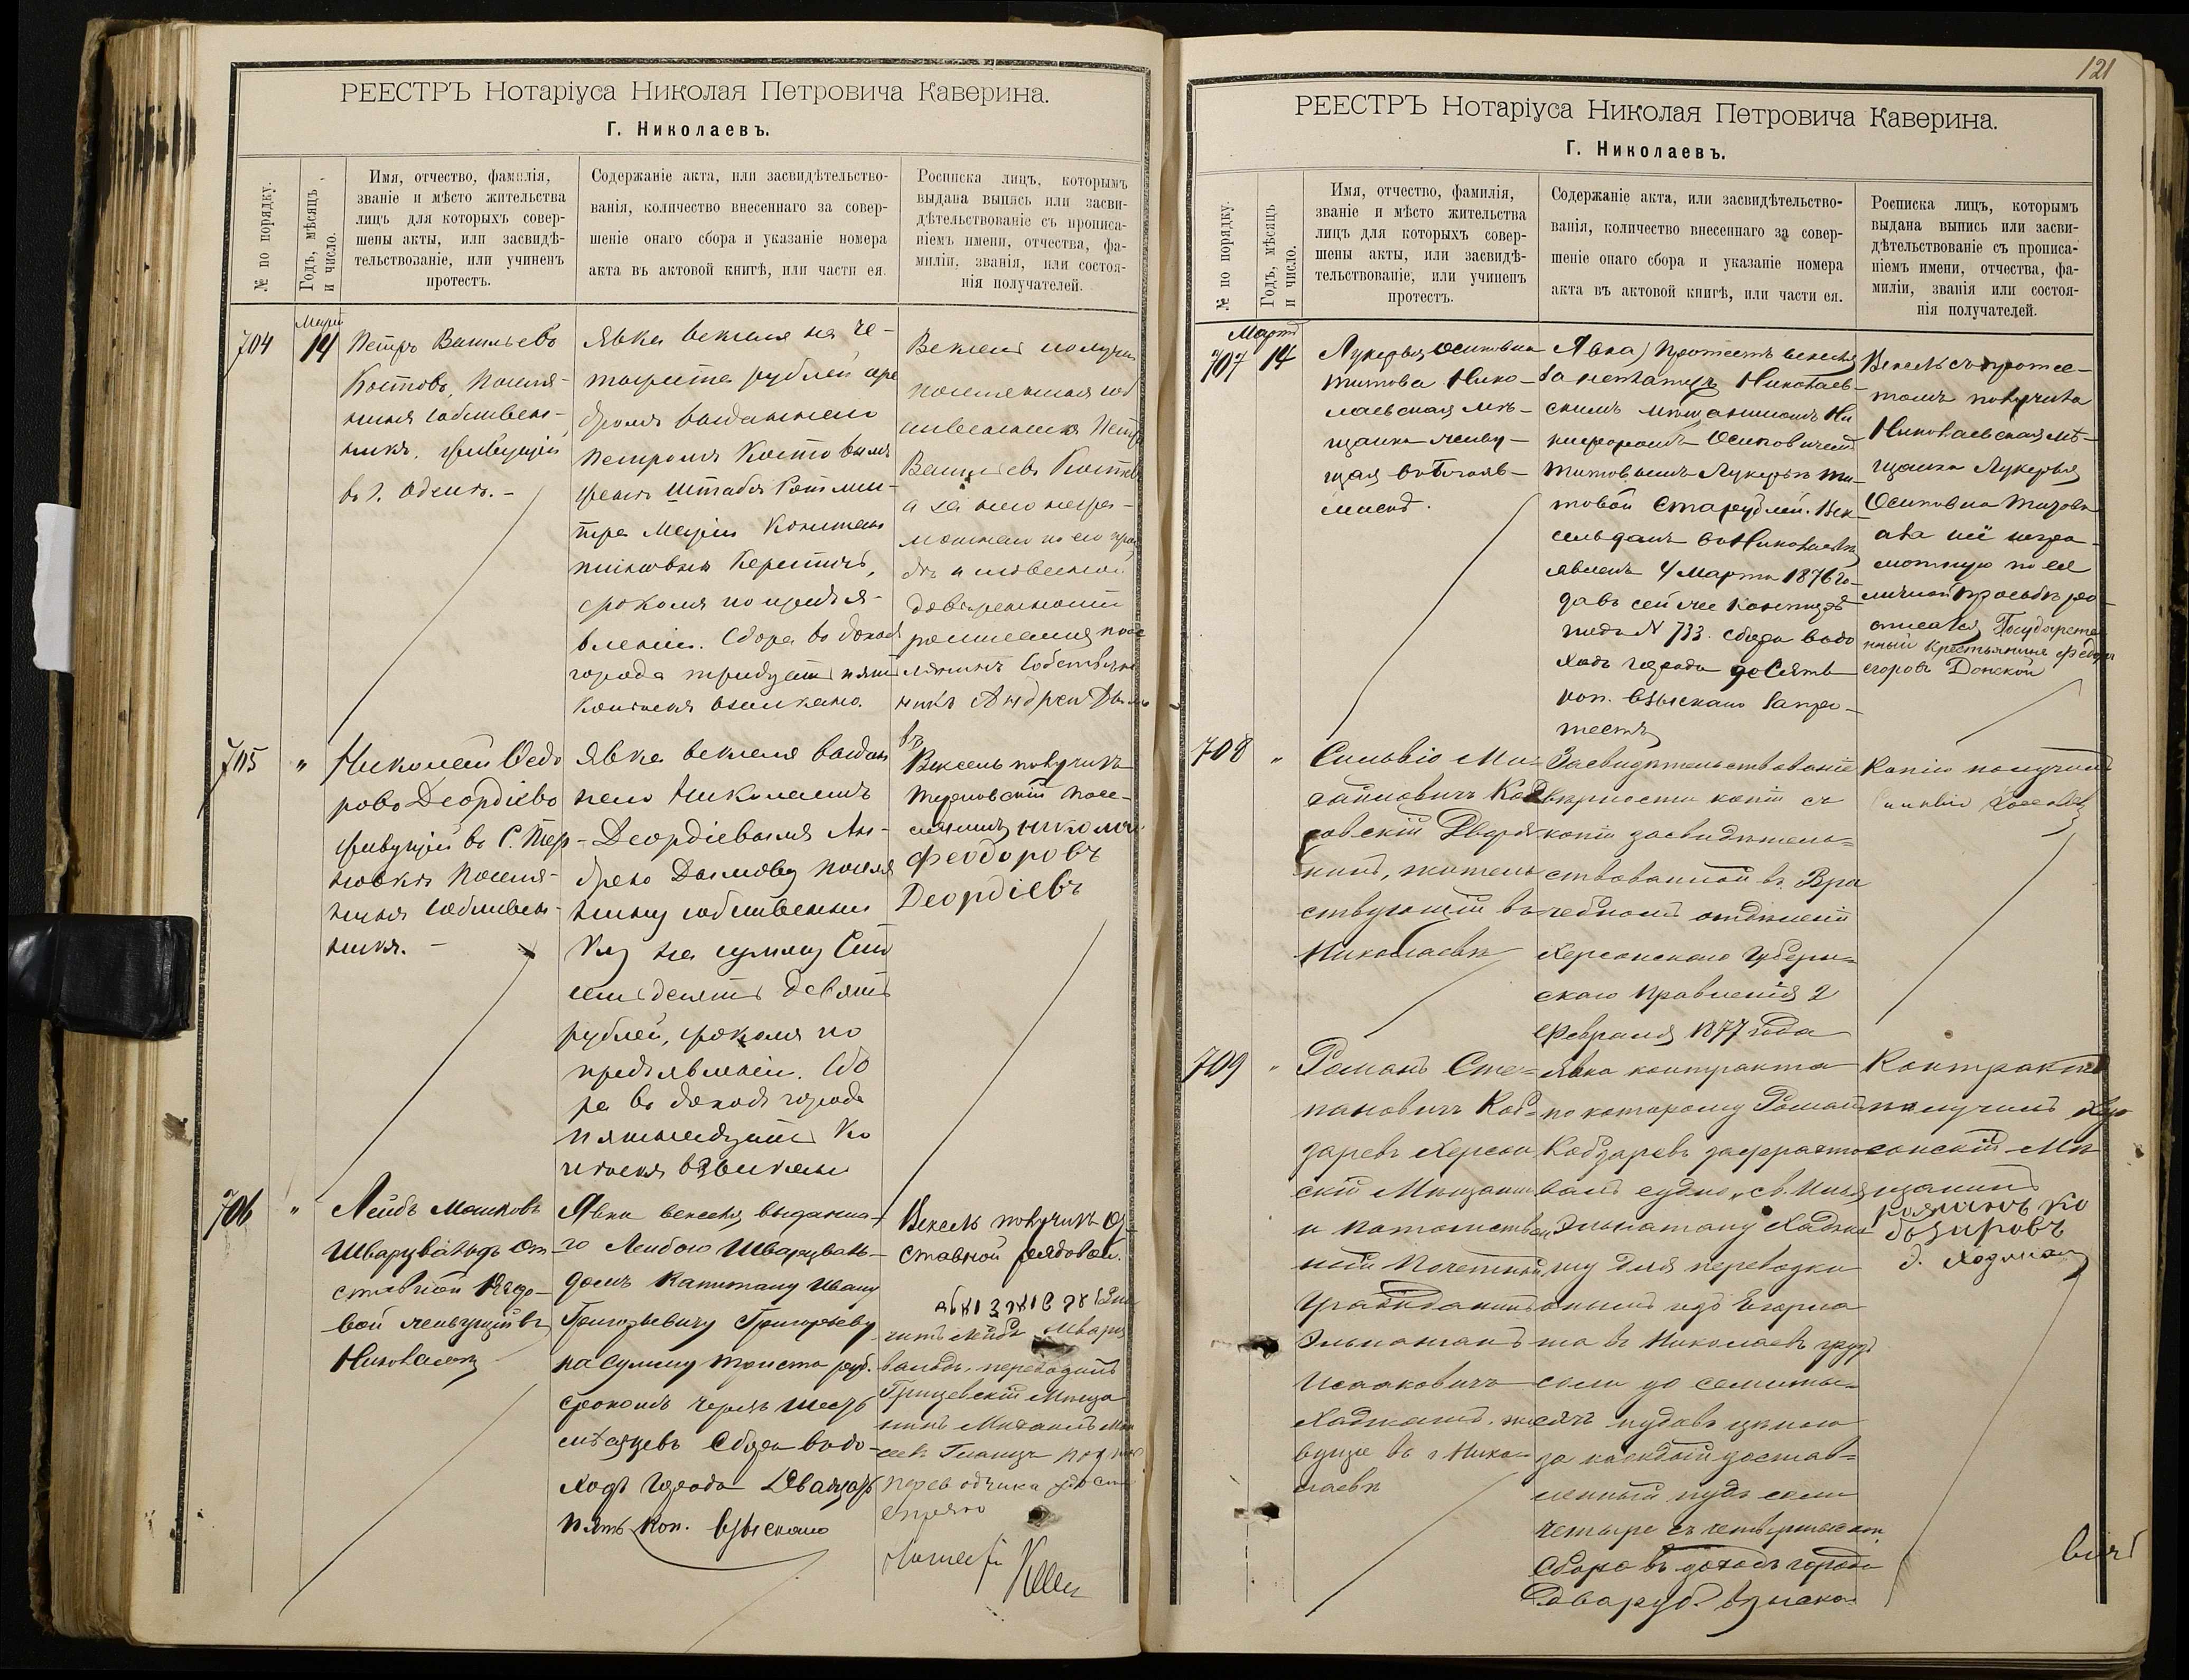 РЕЕСТРЪ Нотаріуса Николая Петровича Каверина.
Г. Николаевъ.
№ по порядку.
Годъ, мѣсяцъ
и число.
Имя, отчество, фамилія,
званіе и мѣсто жительства
лицъ для которыхъ совер-
шены акты, или засвидѣ-
тельствованіе, или учиненъ
протестъ.
Содержаніе акта, или засвидѣтельство-
ванія, количество внесеннаго за совер-
шеніе онаго сбора и указаніе номера
акта въ актовой книгѣ, или части ея.
Росписка лицъ, которымъ
выдана выпись или засви-
дѣтельствованіе съ прописа-
ніемъ имени, отчества, фа-
миліи, званія, или состоя-
нія получателей.
704
Мартъ
14
Петръ Васильевъ
Костовъ, поселя-
нинъ собственн-
никъ, живущій
въ г. Одессѣ. -
Явка векселя на че-
тыреста рублей сере
бромъ выданнаго
Петромъ Костовымъ
женѣ Штабъ Ротмис-
тра Маріи Констан
тиновнѣ
срокомъ по предъя-
вленіи. Сбора въ доходъ
города тридцать пять
копѣекъ взыскано.
Вексель получилъ
поселянинъ соб
ственникъ Петръ
Васильевъ Костовъ
а за него неграм-
мотнаго по его прось
бѣ и словесной
довѣренности
росписался посе
лянинъ собствен
никъ Андрей
въ
705
"
Николай Ѳедо
ровъ Деордіевъ
живущій въ С. Тер-
новкѣ поселя-
нинъ собствен-
никъ. -
Явка векселя выдан
наго Николаемъ
Деордіевымъ Ан-
дрею Дымову поселя
нину собственни
ку на сумму сто
семьдесятъ девять
рублей, срокомъ по
предъявленіи. Сбо
ра въ доходъ города
пятнадцать ко
пѣекъ взыскано
Вексель получилъ
Терновскій посе-
лянинъ Николай
Феодоровъ
Деордіевъ
706
"
Лейбъ Мошковъ
Шварцвальдъ От
ставной Рядо-
вой живущій въ
Николаевѣ
Явка векселя выданна-
го Лейбою Шварцваль-
домъ Капитану Ивану
Григорьевичу Григорьеву
на сумму триста руб.
срокомъ черезъ шесть
мѣсяцевъ Сбора въ до-
ходъ города Двадцать
пять коп. взыскано
Вексель получилъ От
ставной рядовой.
читъ Лейбъ Шварц
вальдъ, переводилъ
Грицевскій мѣща
нинъ Михаилъ
переводчика
РЕЕСТРЪ Нотаріуса Николая Петровича Каверина.
Г. Николаевъ.
121
№ по порядку.
Годъ, мѣсяцъ
и число.
Имя, отчество, фамилія,
званіе и мѣсто жительства
лицъ для которыхъ совер-
шены акты, или засвидѣ-
тельствованіе, или учиненъ
протестъ.
Содержаніе акта, или засвидѣтельство-
ванія, количество внесеннаго за совер-
шеніе онаго сбора и указаніе номера
акта въ актовой книгѣ, или части ея.
Росписка лицъ, которымъ
выдана выпись или засви-
дѣтельствованіе съ прописа-
ніемъ имени, отчества, фа-
миліи, званія или состоя-
нія получателей.
Мартъ
707
14
Лукерья Осиповна
Титова Нико-
лаевская мѣ-
щанка живу-
щая въ
Явка Протестъ векселя
за неплатежъ Николаев-
скимъ мѣщаниномъ Ни
кифоромъ Осиповичемъ
Титовымъ Лукерьѣ Ти-
товой Ста рублей. Век-
сель данъ въ Николаевѣ
явленъ 4 Марта 1876 го-
да въ сей же конторѣ
подъ N 733. сбора въ до
ходъ города десять
коп. взыскано за про-
тестъ
Вексель съ протес-
томъ получила
Николаевская мѣ-
щанка Лукерья
Осиповна Титова
а за нее негра-
мотную по ея
личной просьбѣ рос-
писался Государстве
нный Крестьянинъ Федоръ
егоровъ Донской
708
"
Сильвіо Ми-
хайловичъ Кос
совскій Дворя
нинъ, житель
ствующій въ
Николаевѣ
Засвидѣтельствованіе
вѣрности копіи съ
копіи засвидѣтель-
ствованной въ Вра
чебномъ отдѣленіи
Херсонскаго Губерн-
скаго Правленія 2
Февраля 1877 года
Копію получилъ
709
"
Романъ Сте-
пановичъ Коб-
заревъ Херсон
скій Мѣщанинъ
и потомствен
ный Почетный
Гражданинъ
Эльнатанъ
Исааковичъ
Хаджи. жи
вущіе въ г. Нико-
лаевѣ
Явка контракта
по которому Романъ
Кобзаревъ зафрахто
валъ судно „Св. Илья
Эльнатану Хаджи
му для перевозки
онымъ изъ Евпа
та въ Николаевъ грузъ
соли до семи ты-
сячъ пудовъ цѣною
за каждый достав-
ленный пудъ соли
четыре съ четвертью коп.
Сбора въ доходъ города
Два руб. взыска-
Контрактъ
получилъ Хер
сонскій Мѣ
щанинъ
Романъ Ко
бзаровъ